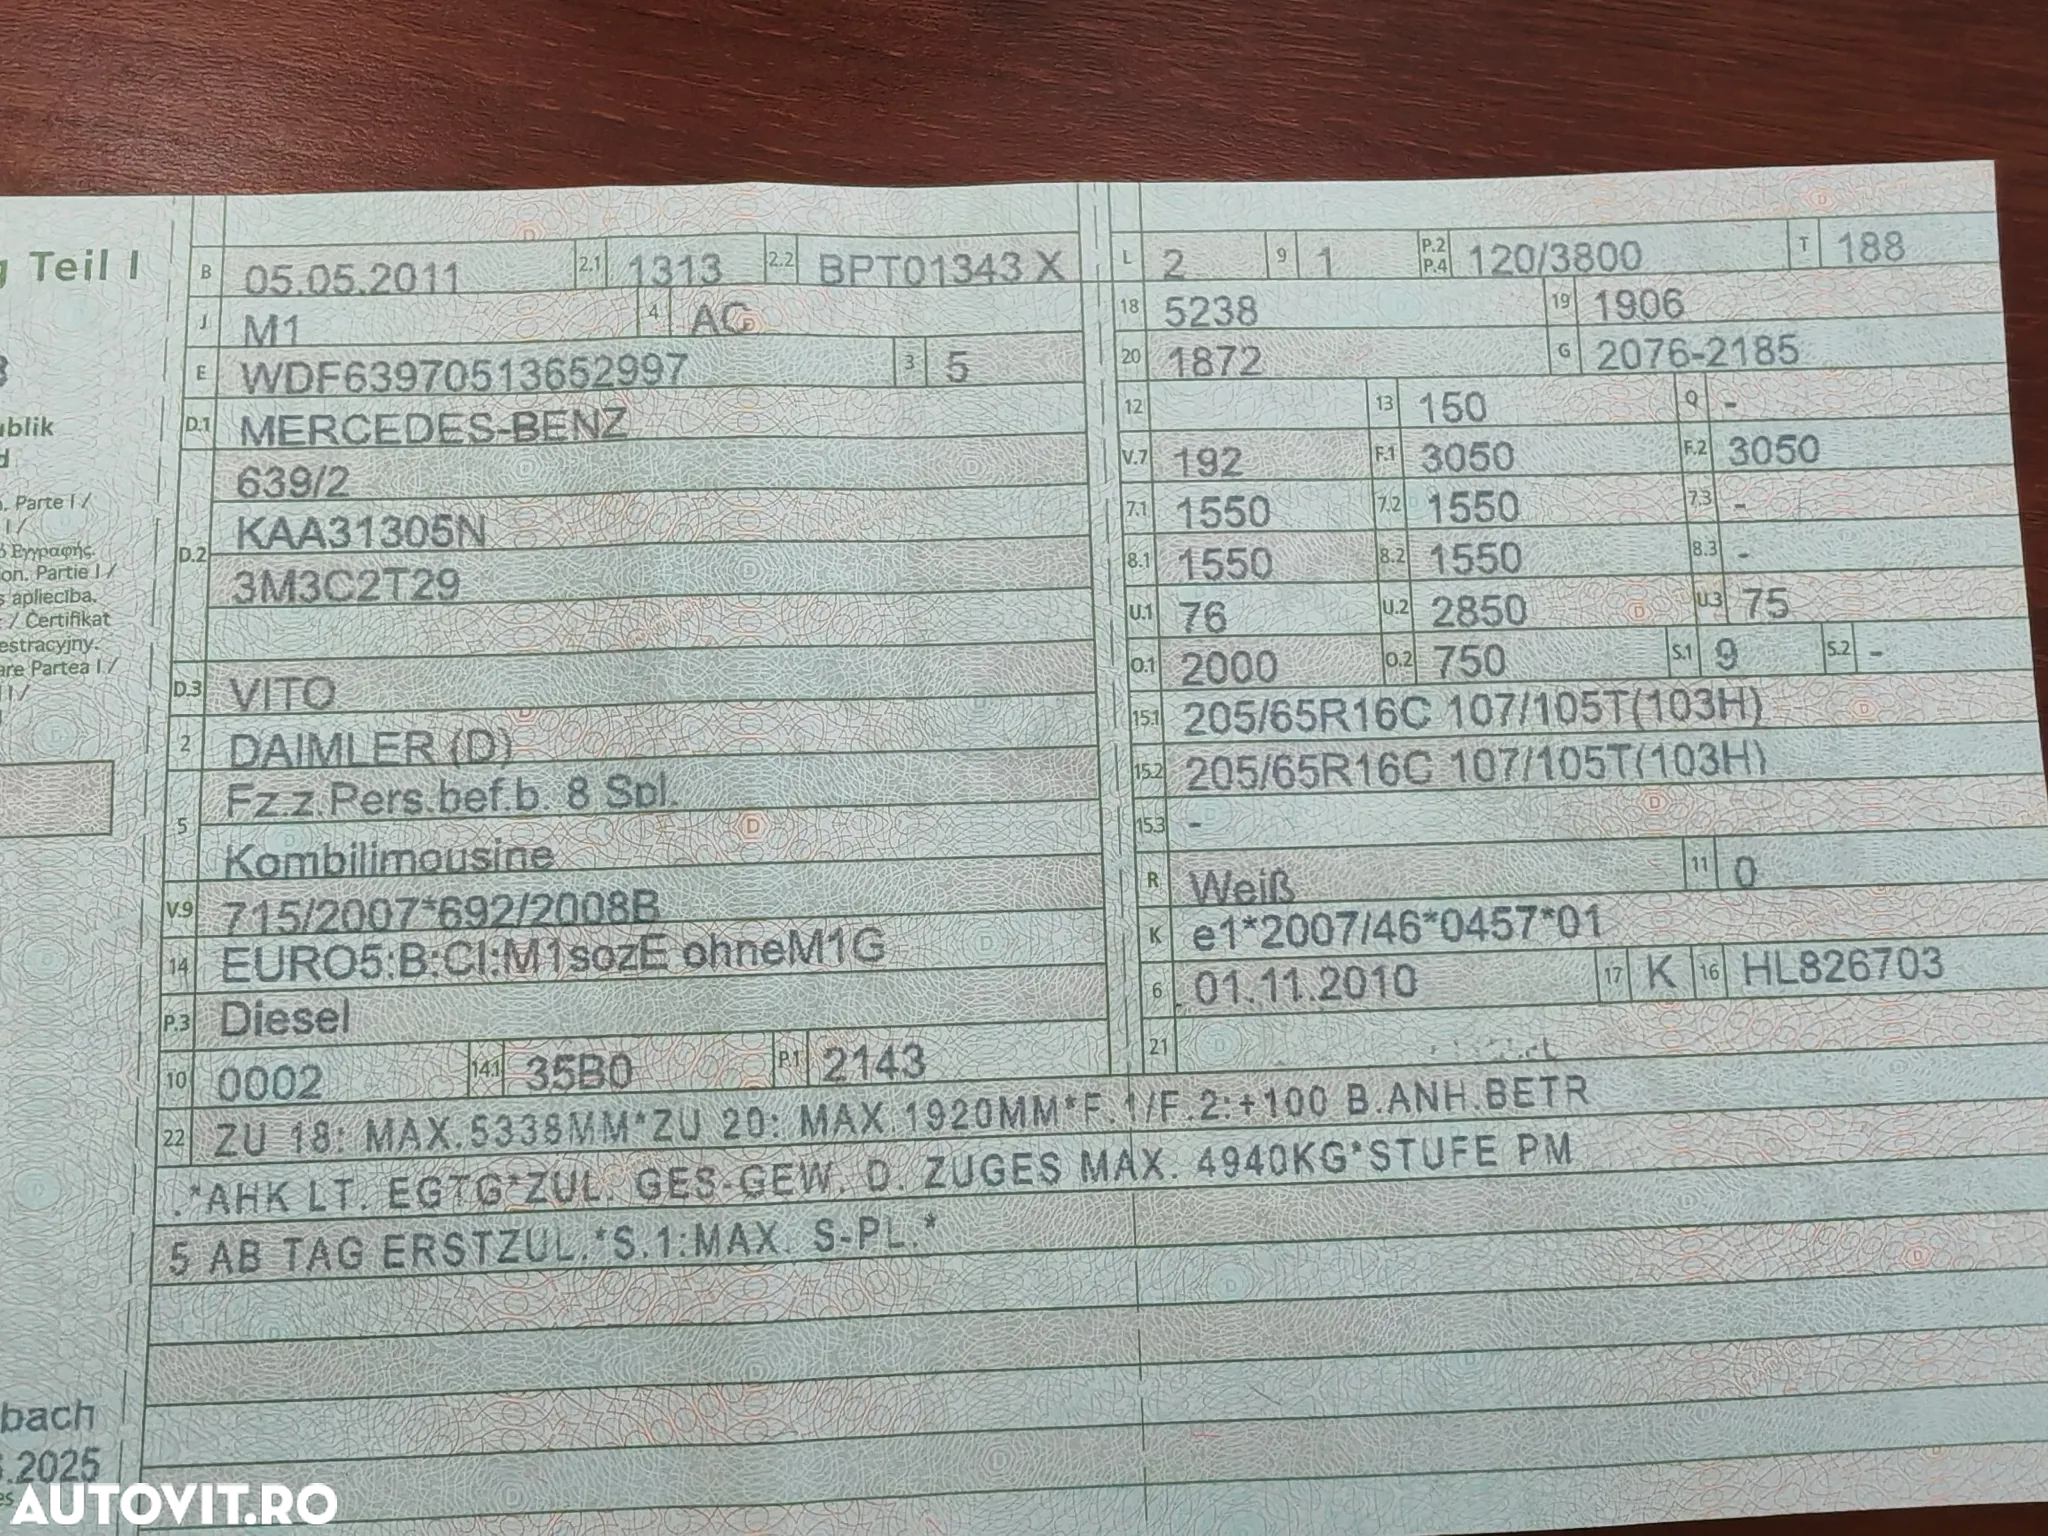 g Teil I
B 05.05.2011 2.1 1313 2.2 BPT01343 X
J M1 4 AC
E WDF63970513652997 3 5
D.1 MERCEDES-BENZ
639/2
D.2 KAA31305N
3M3C2T29
D.3 VITO
2 DAIMLER (D)
5 Fz.z.Pers.bef.b. 8 Spl.
Kombilimousine
V.9 715/2007*692/2008B
14 EURO5;B;CI;M1sozE ohneM1G
P.3 Diesel
10 0002 14.1 35B0 P.1 2143
L 2 9 1 P.2 P.4 120/3800 T 188
18 5238 19 1906
20 1872 G 2076-2185
12 13 150 Q -
V.7 192 F.1 3050 F.2 3050
7.1 1550 7.2 1550 7.3 -
8.1 1550 8.2 1550 8.3 -
U.1 76 U.2 2850 U.3 75
O.1 2000 O.2 750 S.1 9 S.2 -
15.1 205/65R16C 107/105T(103H)
15.2 205/65R16C 107/105T(103H)
15.3 -
R Weiß 11 0
K e1*2007/46*0457*01
6 01.11.2010 17 K 16 HL826703
21
22 ZU 18: MAX.5338MM*ZU 20: MAX.1920MM*F.1/F.2:+100 B.ANH.BETR
.*AHK LT. EGTG*ZUL. GES-GEW. D. ZUGES MAX. 4940KG*STUFE PM
5 AB TAG ERSTZUL.*S.1:MAX. S-PL.*
ublik
d
. Parte I /
I /
Εγγραφής.
on. Partie I /
s apliecība.
/ Certifikat
estracyjny.
are Partea I /
I /
bach
.2025
AUTOVIT.RO